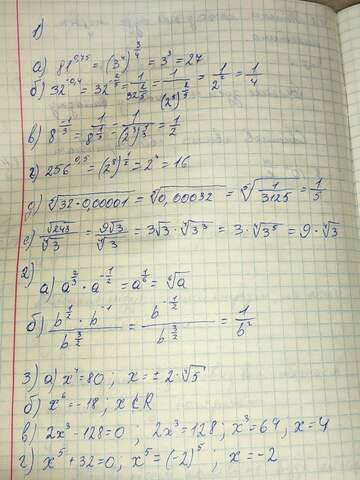 1)
а) 81^0,75 = (3^4)^(3/4) = 3^3 = 27
б) 32^-0,4 = 32^(-2/5) = 1/32^(2/5) = 1/(2^5)^(2/5) = 1/2^2 = 1/4
в) 8^(-1/3) = 1/8^(1/3) = 1/(2^3)^(1/3) = 1/2
г) 256^0,5 = (2^8)^(1/2) = 2^4 = 16
д) ⁵√(32·0,00001) = ⁵√0,00032 = ⁵√(1/3125) = 1/5
е) √243/⁴√3 = 9√3/⁴√3 = 3√3 · ⁴√3^3 = 3 · ⁴√3^5 = 9 · ⁴√3
2)
а) a^(2/3) · a^(-1/2) = a^(1/6) = ⁶√a
б) (b^(-1/2) · b^-1)/b^(3/2) = b^(-1/2)/b^(3/2) = 1/b^2
3) а) x^4 = 80; x = ± 2·⁴√5
б) x^6 = -18; x ∉ R
в) 2x^3 - 128 = 0; 2x^3 = 128; x^3 = 64, x = 4
г) x^5 + 32 = 0, x^5 = (-2)^5; x = -2